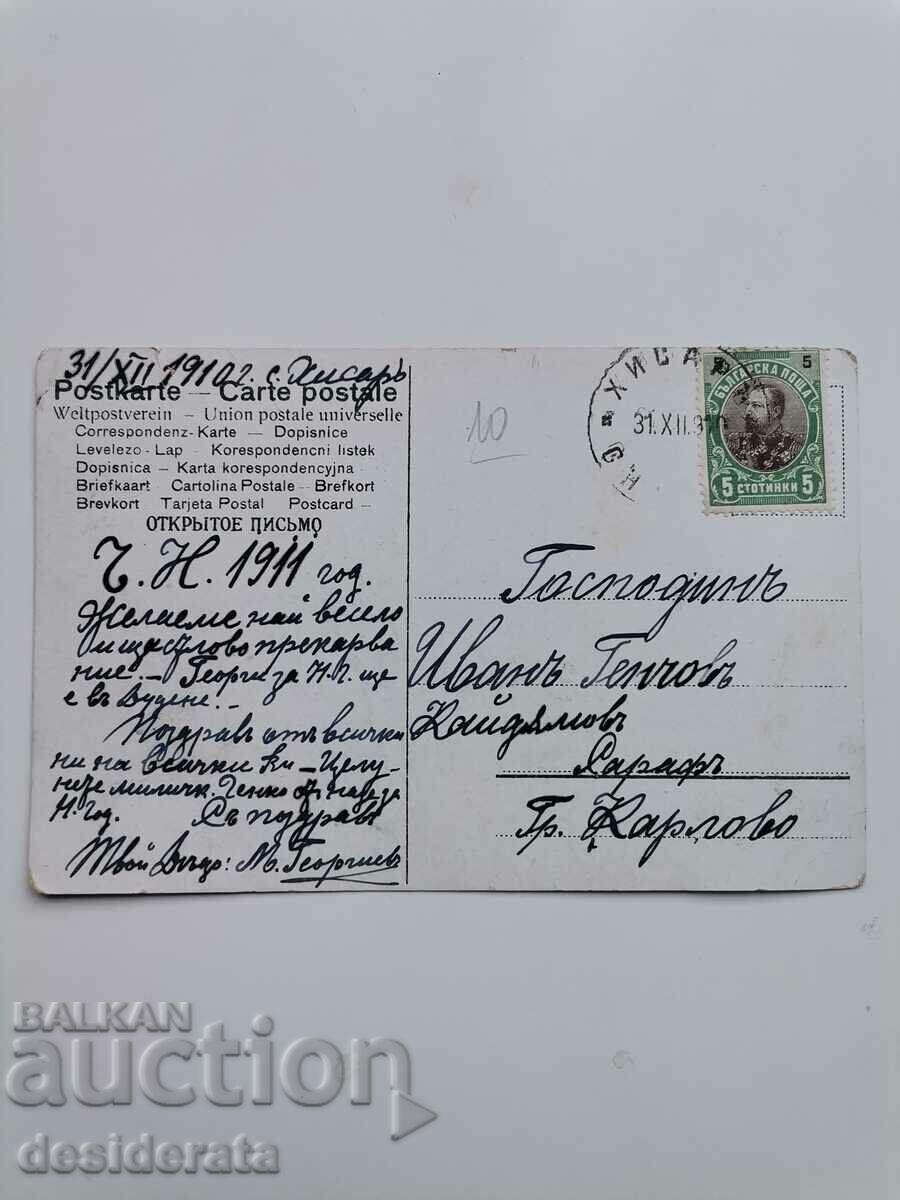 31/XII 1910 г. с. Хисаръ
Postkarte — Carte postale
Weltpostverein – Union postale universelle
Correspondenz-Karte — Dopisnice
Levelezo-Lap – Korespondencni listek
Dopisnica – Karta korespondencyjna
Briefkaart – Cartolina Postale – Brefkort
Brevkort Tarjeta Postal Postcard –
ОТКРЫТОЕ ПИСЬМО
Ч. Н. 1911 год.
Желаеме най весело
и щастлово прекарва
ние. – Георги за Н. Г. ще
е въ
Поздравъ отъ всички
ни на всички ви – Целу-
миличк. Генко за
Н. Год. Съ поздравъ
Твой М. Георгиевъ
10
ХИСАР
31.XII.910
БЪЛГАРСКА ПОЩА
5
5 СТОТИНКИ 5
Господинъ
Иванъ Генчовъ
Кайдямовъ
Сарафъ
Гр. Карлово
BALKAN
auction
desiderata